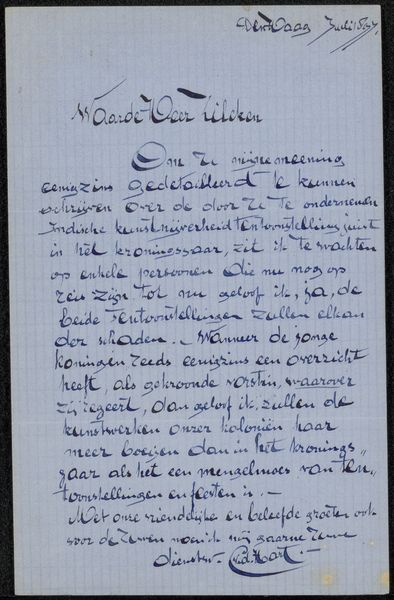 Den Haag Juli 1897.
Waarde Heer Zilcken
Om U mijne meening
eenigzins gedetailleerd te kunnen
schrijven over de door U te ondernemen
Indische kunstnijverheid tentoonstelling juist
in het kroningsjaar, zit ik te wachten
op enkele persoonen die nu nog op
reis zijn tot nu geloof ik, ja, de
beide tentoonstellingen zullen elkan
der schaden. – Wanneer de jonge
koningin reeds eenigzins een overzicht
heeft, als gekroonde vorstin, waarover
zij regeert, dan geloof ik, zullen de
kunstwerken onzer koloniën haar
meer boeijen dan in het kronings„
jaar als het een mengelmoes van ten„
toonstellingen en feesten is. –
Met onze vriendelijke en beleefde groeten ook
voor de Uwen noem ik mij gaarne Uwe
dienstw.